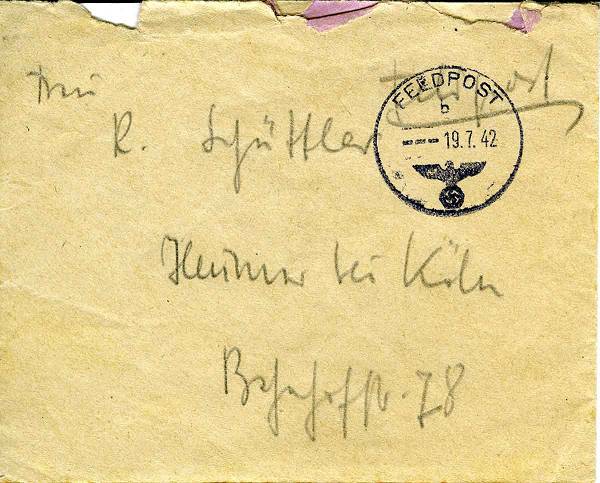 Feldpost
FELDPOST
b
--- 19.7.42
R. Schüttler
Heumar bei Köln
Bahnhofstr. 78